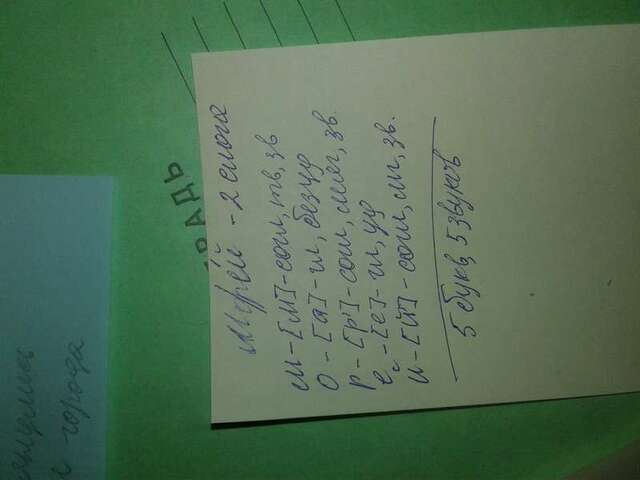 РАДЬ
Морей - 2 слога
м - [м] - согл, тв, зв
о - [а] - гл, безуд
р - [р'] - согл, мяг, зв.
е - [е] - гл, уд
й - [й'] - согл, мяг, зв.
5 букв, 5 звуков
города